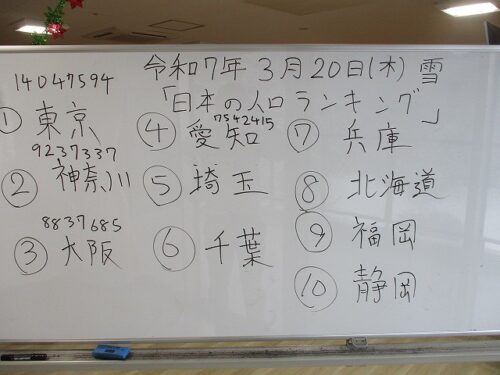 令和7年3月20日(木)雪
「日本の人口ランキング」
14047594
①東京
9237337
②神奈川
8837685
③大阪
7542415
④愛知
⑤埼玉
⑥千葉
⑦兵庫
⑧北海道
⑨福岡
⑩静岡